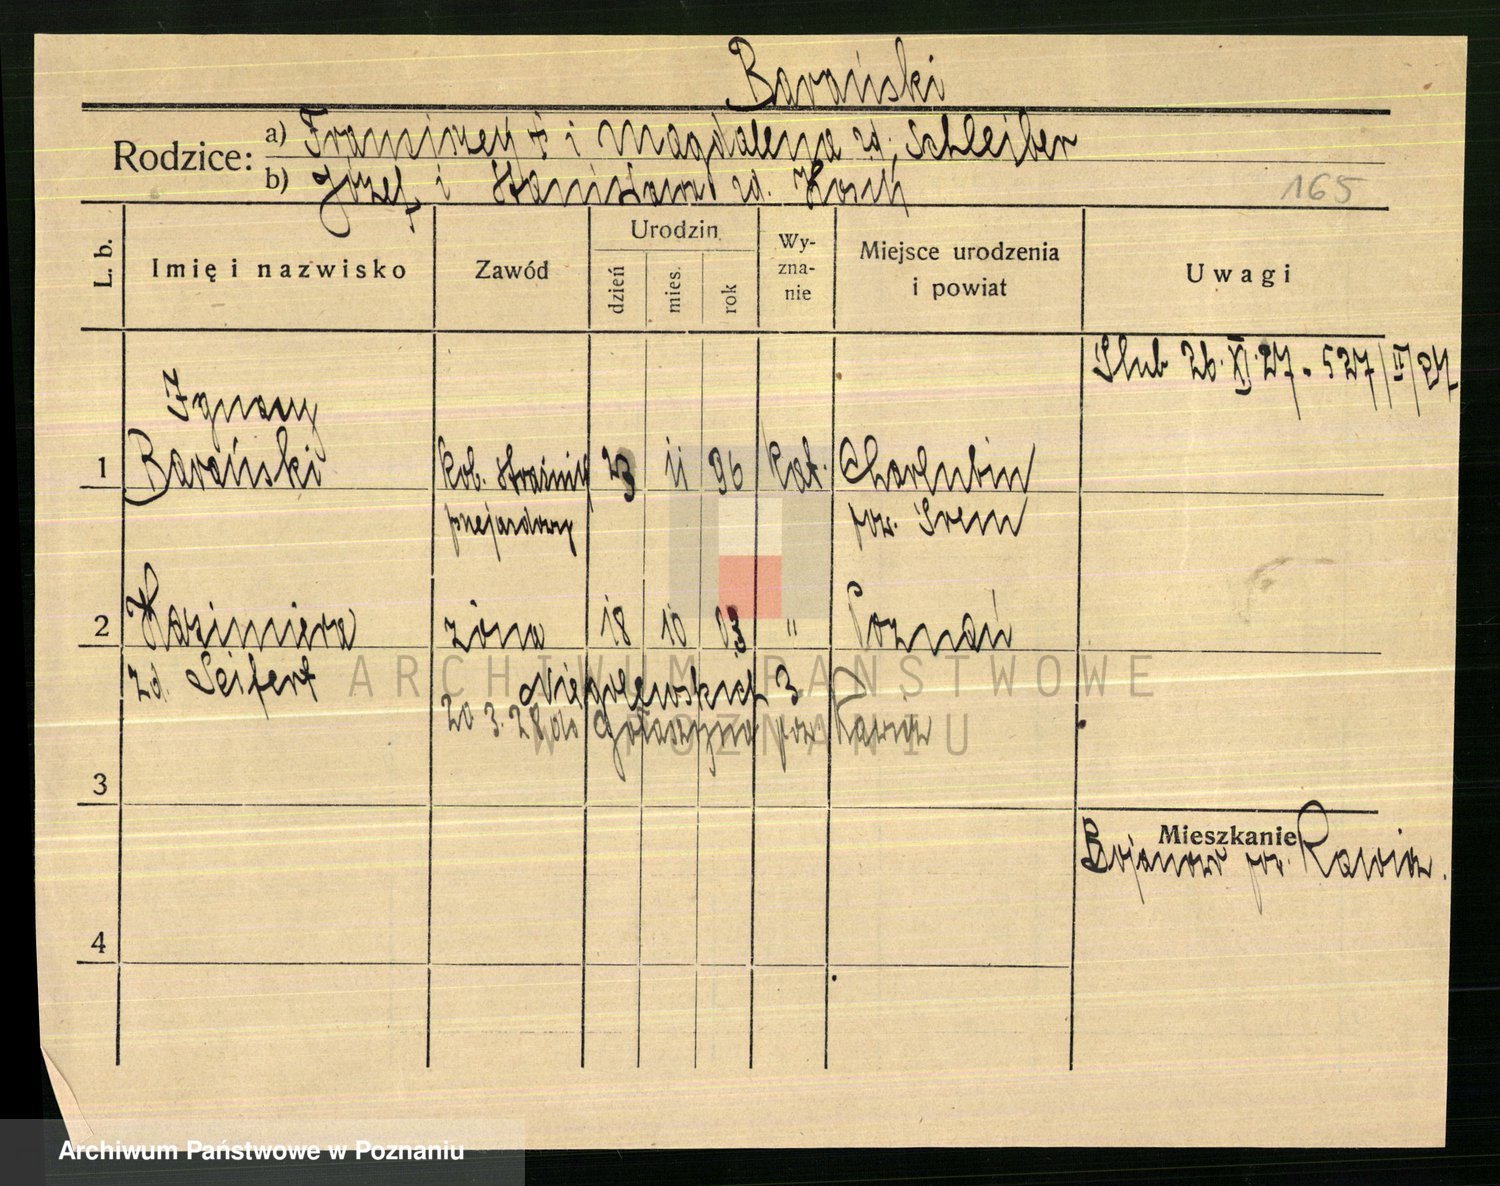 Barański
Rodzice: a) Franciszek † i Magdalena zd. Schleiber
b) Józef i Stanisława zd.
165
L. b. Imię i nazwisko Zawód Urodzin Wy-zna-nie Miejsce urodzenia i powiat Uwagi
dzień mies. rok
Ślub 26.XI.27. 527/II/27
Ignacy
1 Barański kol. strażnik 23 11 96 kat. Charłubin
przejazdowy pow. Śrem
2 Kazimiera żona 18 10 03 " Poznań
zd. Seifert Niegolewskich 3
20 3. 28 do Gołaszyna pow Rawicz
3
Mieszkanie
Bojanowo pow. Rawicz.
4
ARCHIWUM PAŃSTWOWE
W POZNANIU
Archiwum Państwowe w Poznaniu